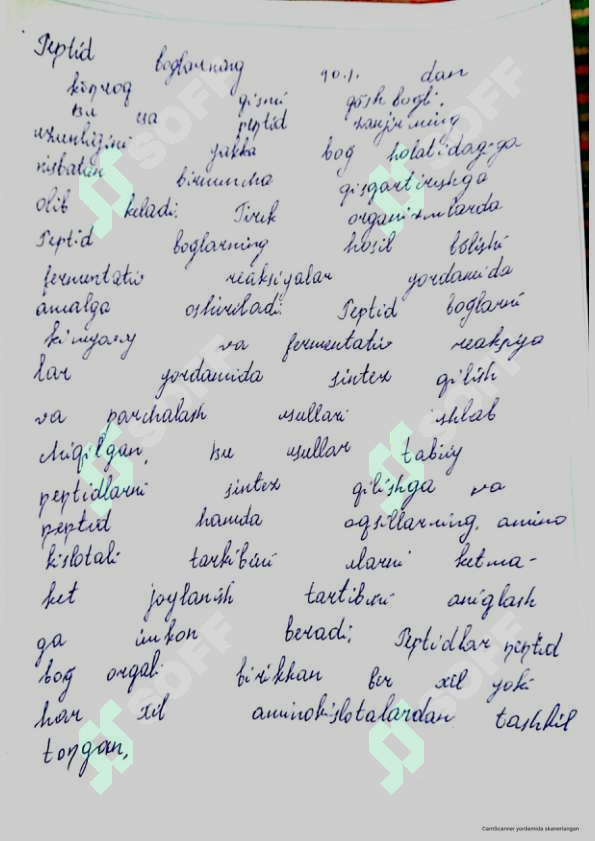 Peptid boglarning 90.%. dan
koproq qismi qosh bogli.
Bu esa peptid zanjirining
uzunligini yakka bog holatidagiga
nisbatan birmuncha qisqartirishga
olib keladi. Tirik organizmlarda
Peptid boglarning hosil bolishi
fermentativ reaksiyalar yordamida
amalga oshiriladi. Peptid boglarni
kimyoviy va fermentativ reaksiya
lar yordamida sintez qilish
va parchalash usullari ishlab
chiqilgan, Bu usullar tabiiy
peptidlarni sintez qilishga va
peptid hamda oqsillarning amino
kislotali tarkibini ularni ketma-
ket joylanish tartibini aniqlash
ga imkon beradi. Peptidlar peptid
bog orqali birikkan bir xil yoki
har xil aminokislotalardan tashkil
topgan.
SOFF
SOFF
SOFF
SOFF
SOFF
SOFF
CamScanner yordamida skanerlangan